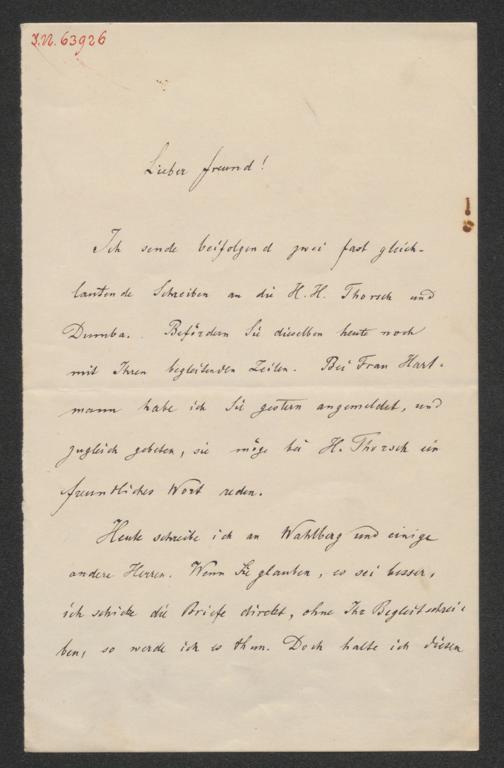 I.N. 63926
Lieber Freund!
Ich sende beifolgend zwei fast gleich-
lautende Schreiben an die H.H. Thorsch und
Dumba. Befördern Sie dieselben heute noch
mit Ihren begleitenden Zeilen. Bei Frau Hart-
mann habe ich Sie gestern angemeldet, und
zugleich gebeten, sie möge bei H. Thorsch ein
freundliches Wort reden.
Heute schreibe ich an Wahlberg und einige
andere Herren. Wenn Sie glauben, es sei besser,
ich schicke die Briefe direkt, ohne Ihr Begleitschrei-
ben, so werde ich es thun. Doch halte ich diesen